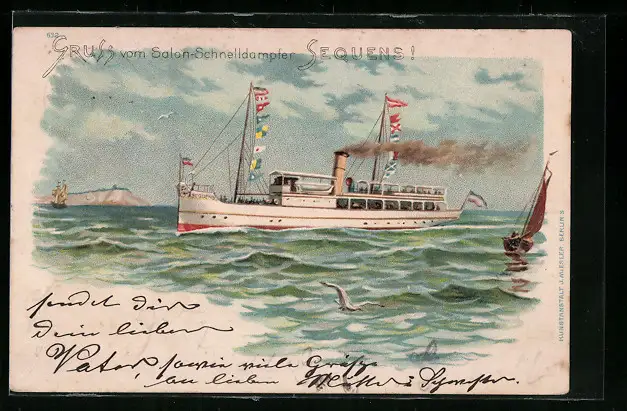 638
Gruss vom Salon-Schnelldampfer Sequens!
KUNSTANSTALT J. MIESLER, BERLIN S
sendet dir
dein lieber
Vater, sowie viele Grüße
an lieben Mutter & Schwester.